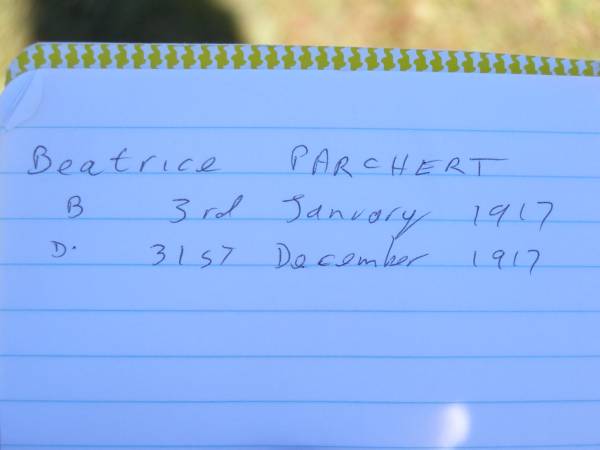 Beatrice PARCHERT
B 3rd January 1917
D. 31ST December 1917